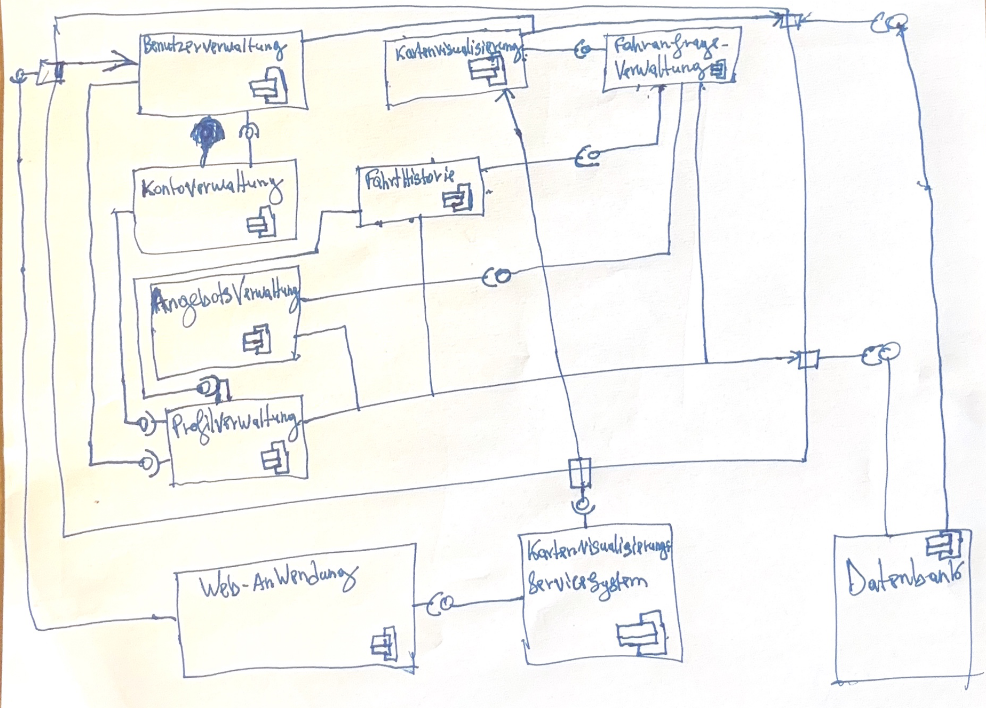 Benutzerverwaltung
Kartenvisualisierung
Fahranfrage-
Verwaltung
Kontoverwaltung
FahrtHistorie
AngebotsVerwaltung
ProfilVerwaltung
Web-AnWendung
KartenVisualisierungs
ServiceSystem
Datenbank